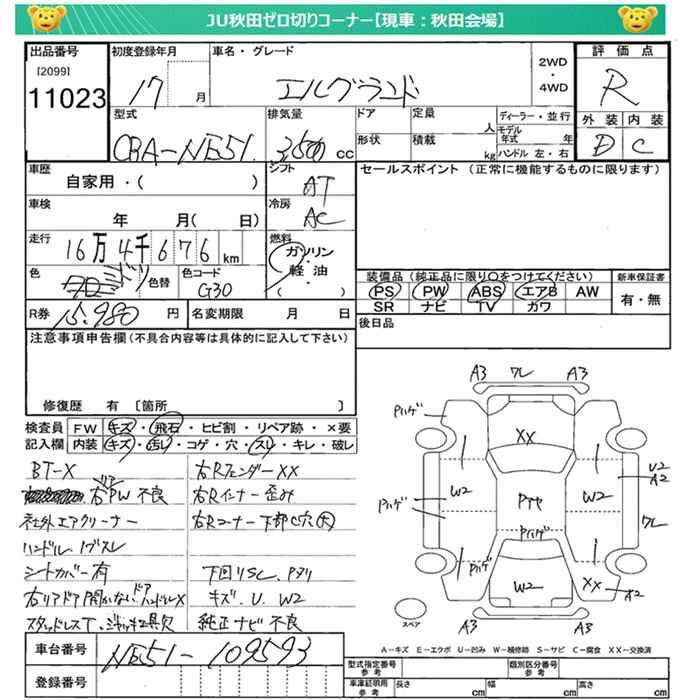 JU秋田ゼロ切りコーナー【現車：秋田会場】
出品番号
[2099]
11023
初度登録年月
17 月
車名・グレード
エルグランド
2WD
・
4WD
評価点
R
外装 内装
D C
型式
CBA-NE51.
排気量
3,500 cc
ドア
形状
定員
人
積載
kg
ディーラー・並行
モデル年式 年
ハンドル 左・右
車歴
自家用・( )
シフト
AT
車検
年 月( 日)
冷房
AC
走行
16万4千676km
燃料
ガソリン
軽油
( )
色
ミドリ
色替
色コード
G30
R券
15,980円
名変期限 月 日
セールスポイント (正常に機能するものに限ります)
装備品(純正品に限り○をつけてください)
PS PW ABS エアB AW
SR ナビ TV カワ
新車保証書
有・無
後日品
注意事項申告欄(不具合内容等は具体的に記入して下さい)
修復歴 有 [箇所 ]
検査員
記入欄
FW キズ・飛石・ヒビ割・リペア跡・×要
内装 キズ・汚レ・コゲ・穴・スレ・キレ・破レ
BT-X
右PW 不良
社外エアクリーナー
ハンドル
シートカバー有
右リアドア開かない ドアハンドルX
スタッドレスT、ジャッキ工具欠
右RフェンダーXX
右Rインナー歪み
右Rコーナー下部C穴大
下回りSC、Pタリ
キズ、U、W2
純正ナビ不良
車台番号
NE51-109593
登録番号
A3 ワレ A3
Pハゲ
XX
W2
Pヤケ
W2
U2
A2
Pハゲ
Pハゲ
ワレ
Pハゲ
W2
XX
A2
スペア
A3 A3
A－キズ E－エクボ U－凹み W－補修跡 S－サビ C－腐食 XX－交換済
型式指定番号
参考
類別区分番号
参考
車庫証明用
参考
長さ cm
幅 cm
高さ cm